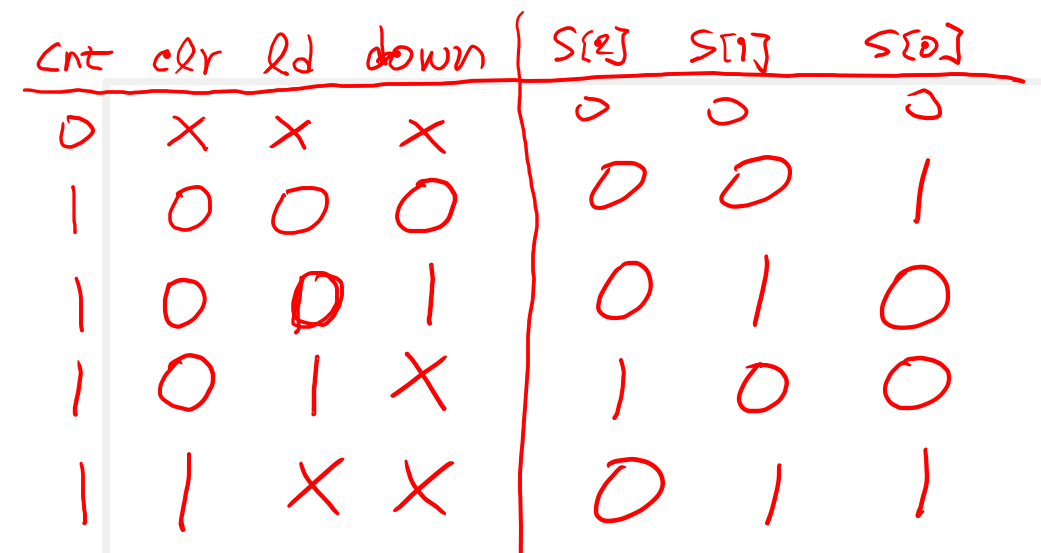 cnt clr ld down S[2] S[1] S[0]
0 X X X 0 0 0
1 0 0 0 0 0 1
1 0 0 1 0 1 0
1 0 1 X 1 0 0
1 1 X X 0 1 1